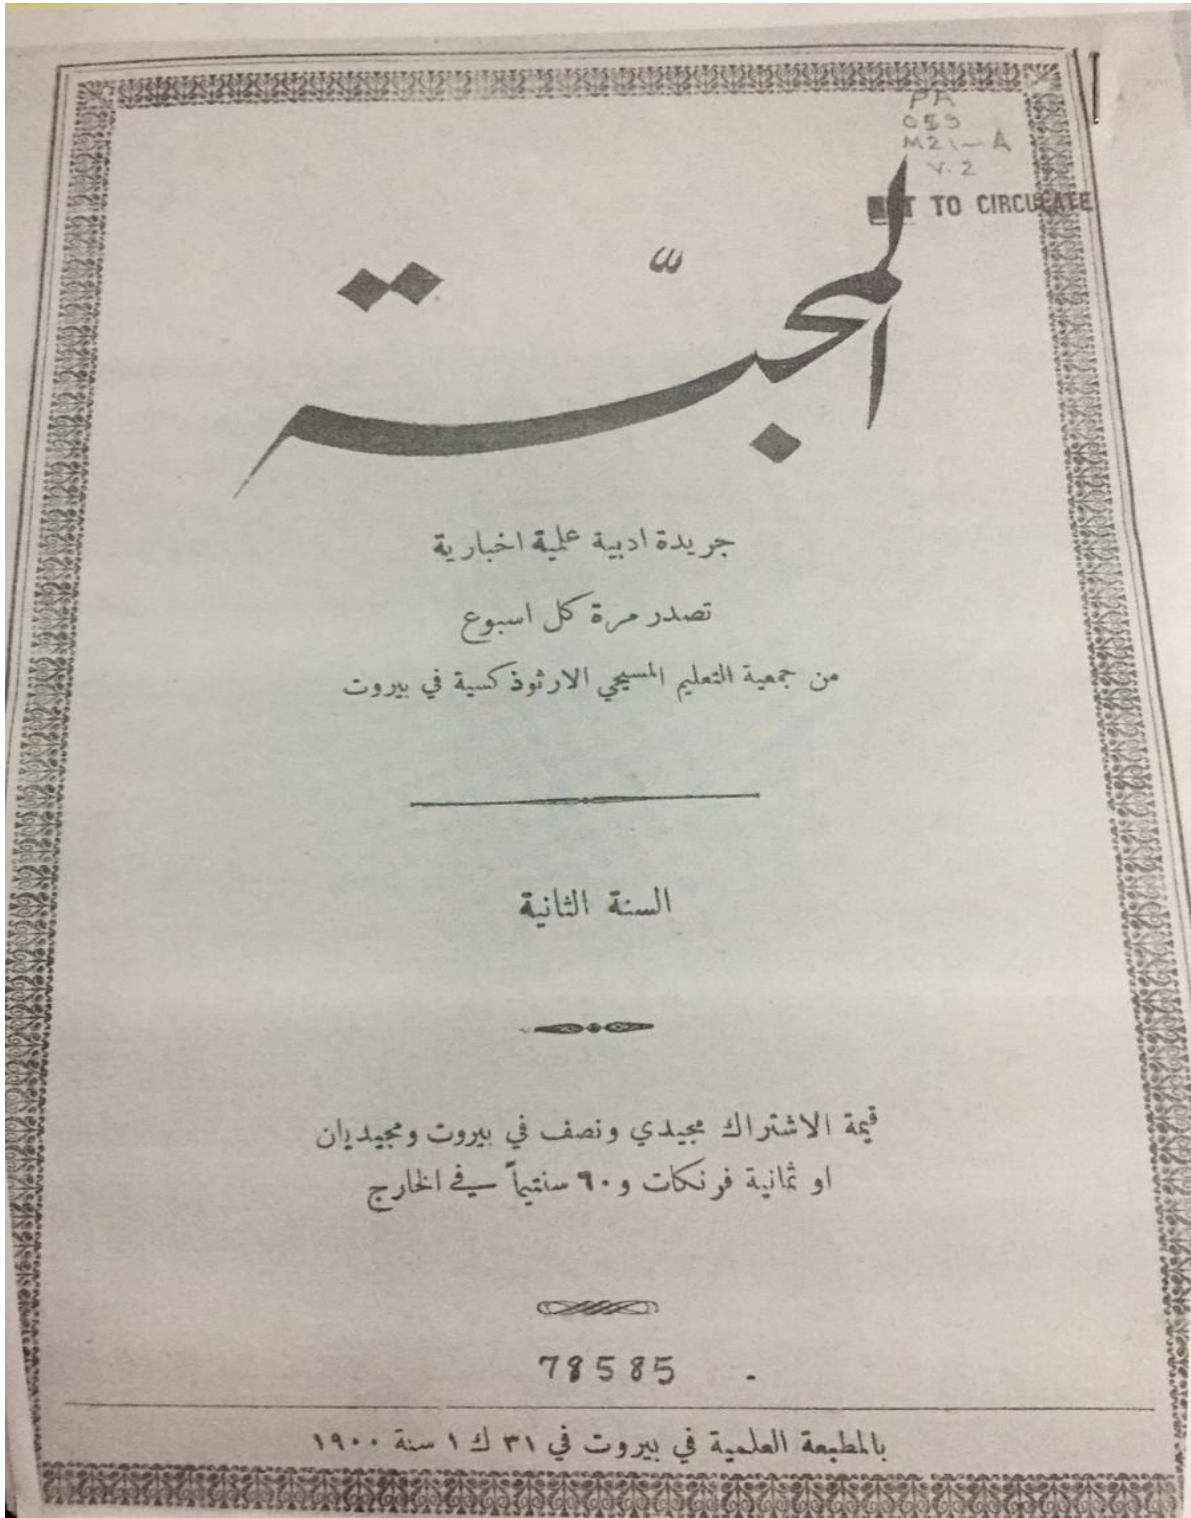 PA
059
M21-A
V.2
TO CIRCULATE
المحبّة
جريدة ادبية علمية اخبارية
تصدر مرة كل اسبوع
من جمعية التعليم المسيحي الارثوذكسية في بيروت
السنة الثانية
قيمة الاشتراك مجيدي ونصف في بيروت ومجيديان
او ثمانية فرنكات و٩٠ سنتيماً في الخارج
78585
بالمطبعة العلمية في بيروت في ٣١ ك ١ سنة ١٩٠٠